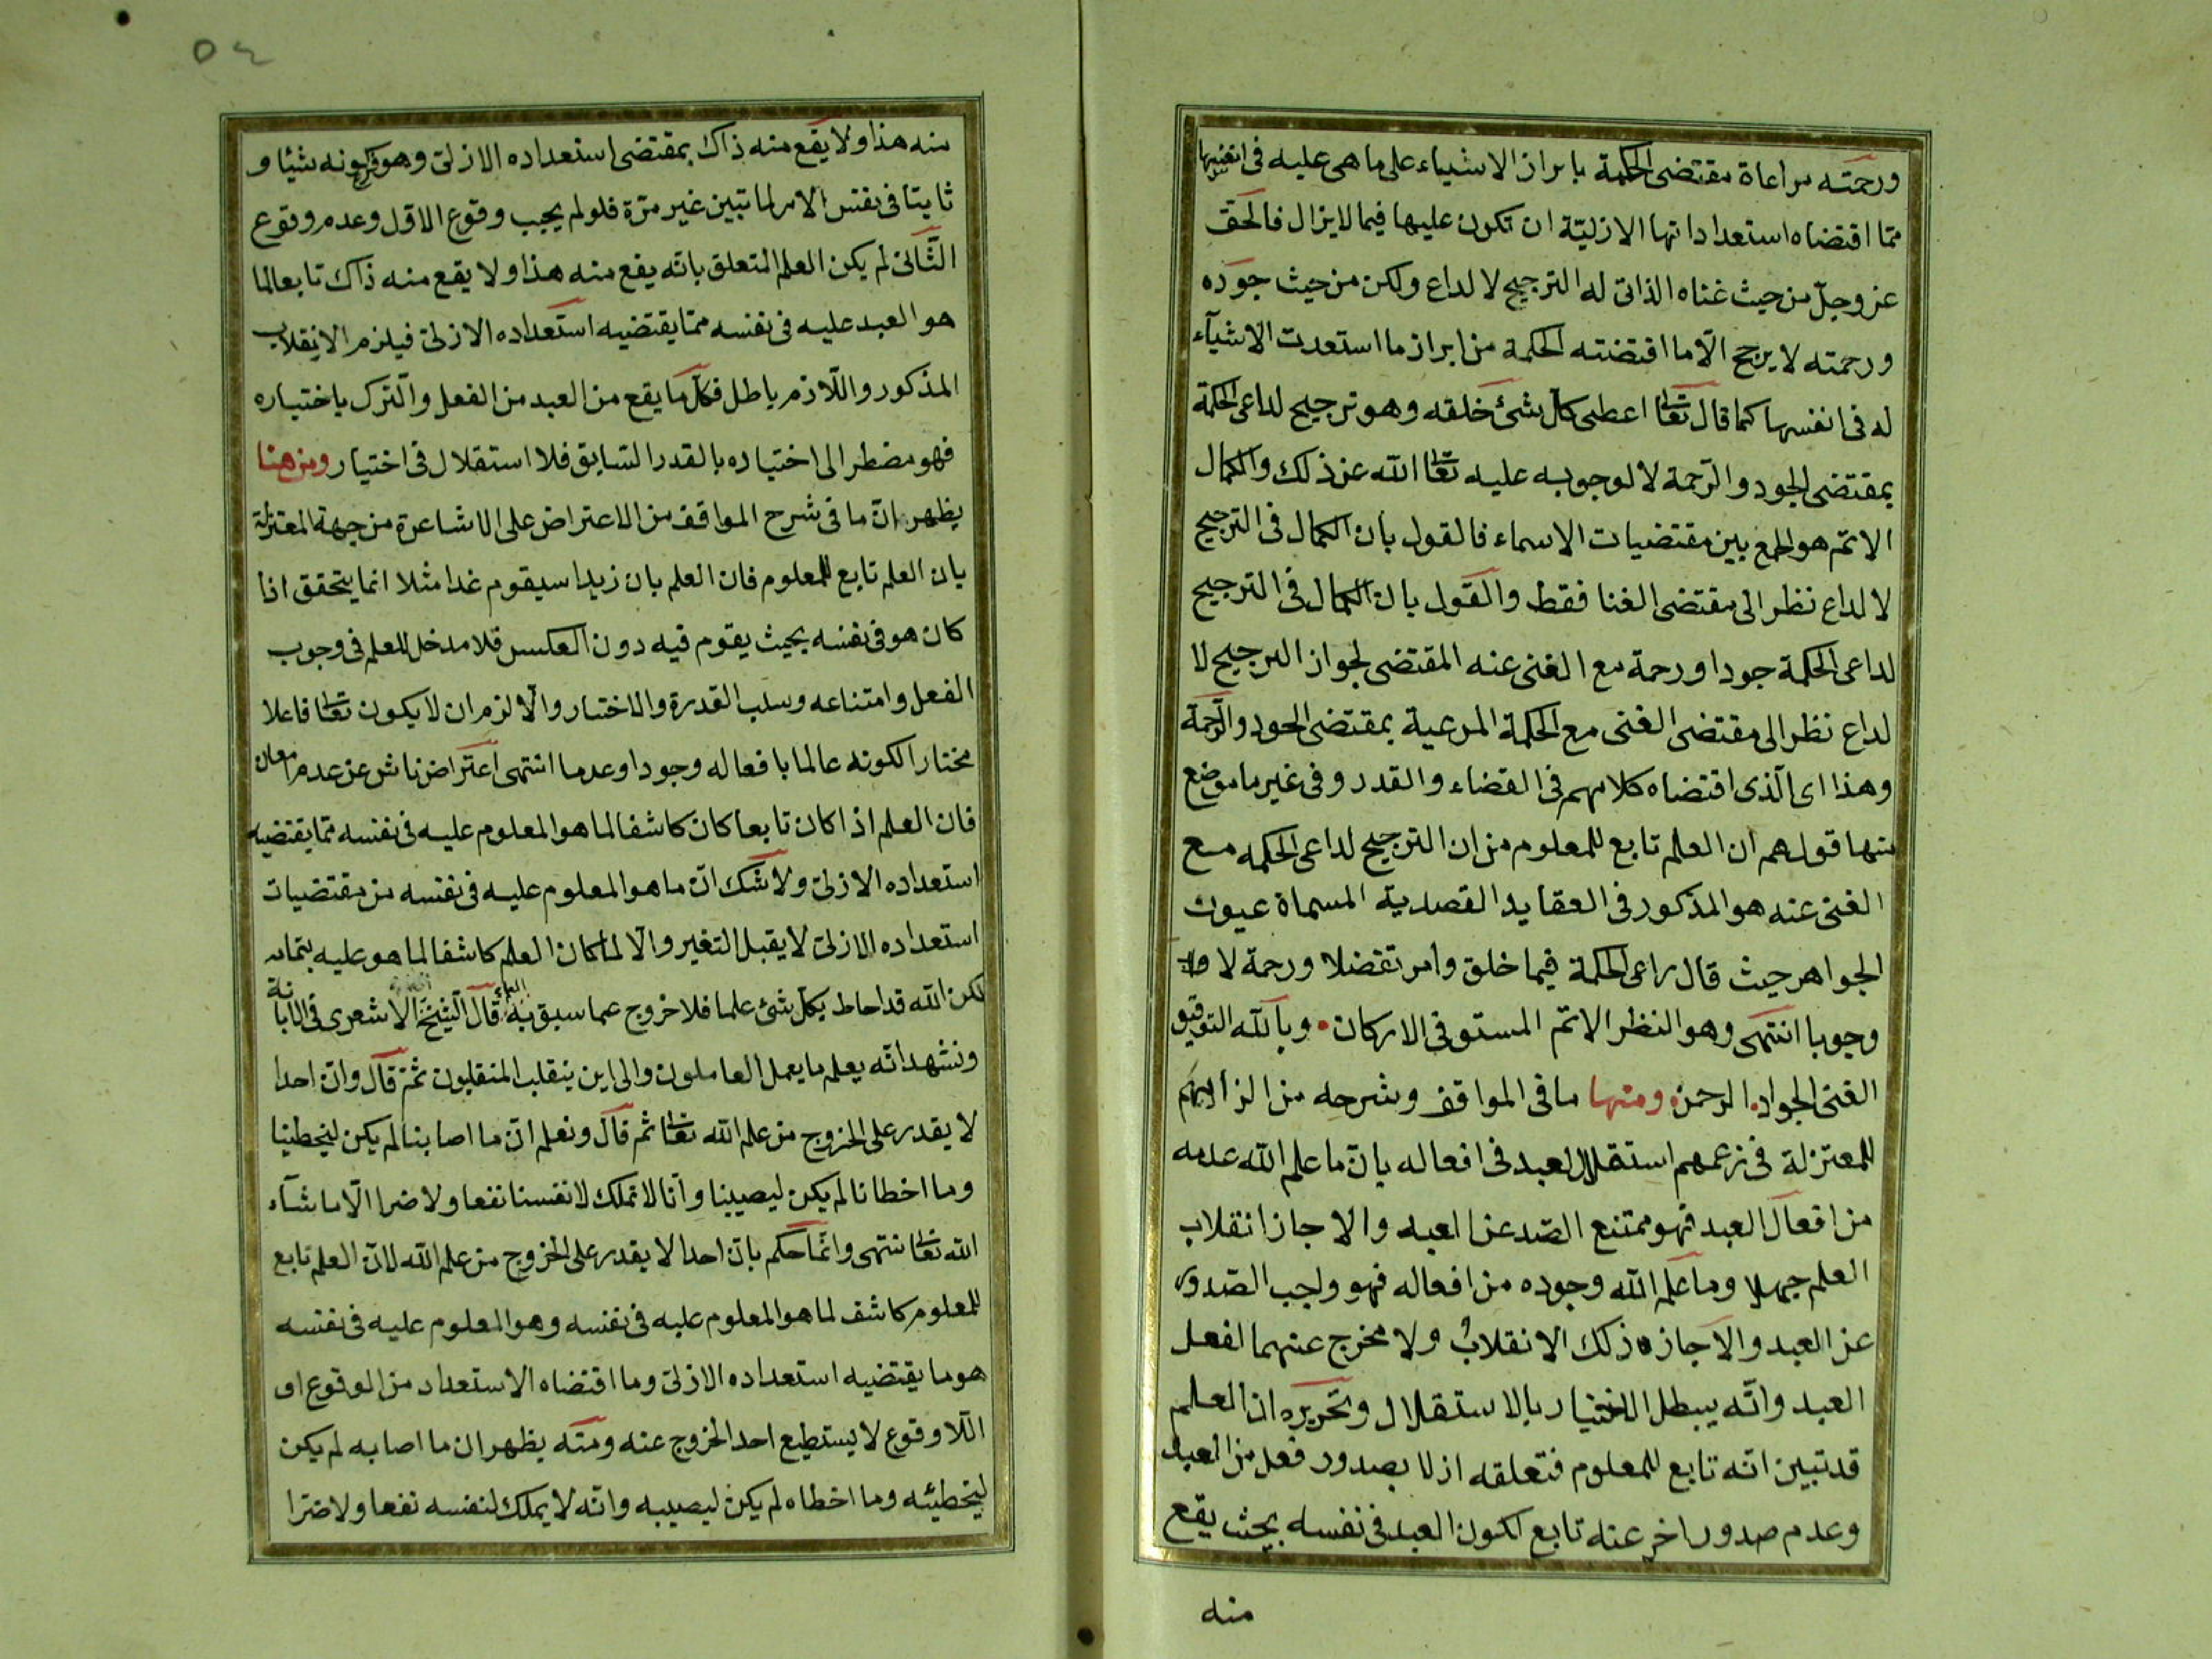 ورحمته مراعاة مقتضى الحكمة بابراز الاشياء على ما هى عليه فى انفسها
مما اقتضاه استعداداتها الازليّة ان تكون عليها فيما لا يزال فالحق
عز وجلّ من حيث غناه الذاتى له الترجيح لا لداع ولكن من حيث جوده
ورحمته لا يرجح الّا ما اقتضته الحكمة من ابراز ما استعدت الاشيآء
له فى انفسها كما قال تعا اعطى كل شئ خلقه وهو ترجيح لداعى الحكمة
بمقتضى الجود والرّحمة لا لوجوبه عليه تعا الله عن ذلك والكمال
الاتم هو الجمع بين مقتضيات الاسماء فالقول بان الكمال فى الترجيح
لا لداع نظر الى مقتضى الغنا فقط والقول بان الكمال فى الترجيح
لداعى الحكمة جودا ورحمة مع الغنى عنه المقتضى لجواز الترجيح لا
لداع نظر الى مقتضى الغنى مع الحكمة المرعية بمقتضى الجود والرّحمة
وهذا اى الّذى اقتضاه كلامهم فى القضاء والقدر وفى غير ما موضع
منها قولهم ان العلم تابع للمعلوم من ان الترجيح لداعى الحكمه مع
الغنى عنه هو المذكور فى العقايد القصدية المسماة عيون
الجواهر حيث قال راعى الحكمة فيما خلق وامر تفضلا ورحمة لا
وجوبا انتهى وهو النظر الاتم المستوفى الاركان وبالله التوفيق
الغنى الجواد الرحمن ومنها ما فى المواقف وشرحه من الزامهم
للمعتزلة فى زعمهم استقلال العبد فى افعاله بانّ ما علم الله عدمه
من افعال العبد فهو ممتنع الصّدعن العبد والا جاز انقلاب
العلم جهلا وما علم الله وجوده من افعاله فهو واجب الصّدور
عن العبد والّا جاز ذلك الانقلاب ولا مخرج عنهما لفعل
العبد وانّه يبطل الاختيار بالاستقلال وتحريره ان العلم
قد تبين انّه تابع للمعلوم فتعلقه ازلا بصدور فعل من العبد
وعدم صدور اخر عنه تابع لكون العبد فى نفسه بحيث يقع
منه
٥٤
منه هذا ولا يقع منه ذاك بمقتضى استعداده الازلىّ وهو كونه شيئا و
ثابتا فى نفس الامر لما تبين غير مرّة فلو لم يجب وقوع الاوّل وعدم وقوع
الثّانى لم يكن العلم المتعلق بانّه يقع منه هذا ولا يقع منه ذاك تابعا لما
هو العبد عليه فى نفسه ممّا يقتضيه استعداده الازلىّ فيلزم الانقلاب
المذكور واللّازم باطل فكل ما يقع من العبد من الفعل والتّرك باختياره
فهو مضطر الى اختياره بالقدر السّابق فلا استقلال فى اختيار ومن هنا
يظهر انّ ما فى شرح المواقف من الاعتراض على الاشاعرة من جهة المعتزلة
بان العلم تابع للمعلوم فان العلم بان زيدا سيقوم غدا مثلا انما يتحقق اذا
كان هو فى نفسه بحيث يقوم فيه دون العكس فلا مدخل للعلم فى وجوب
الفعل وامتناعه وسلب القدرة والاختيار والّا لزم ان لا يكون تعا فاعلا
مختارا لكونه عالما بافعاله وجودا وعدما انتهى اعتراض ناش عن عدم امعان
فان العلم اذا كان تابعا كان كاشفا لما هو المعلوم عليه فى نفسه ممّا يقتضيه
استعداده الازلىّ ولا شك انّ ما هو المعلوم عليه فى نفسه من مقتضيات
استعداده الازلىّ لا يقبل التغير والّا لما كان العلم كاشفا لما هو عليه بتمامه
لكن الله قد احاط بكلّ شئ علما فلا خروج عما سبق به العلم قال الشّيخ الاشعرى فى الابانة
ونشهد انّه يعلم ما يعمل العاملون والى اين ينقلب المنقلبون ثمّ قال وانّ احدا
لا يقدر على الخروج من علم الله تعا ثم قال ونعلم انّ ما اصابنا لم يكن ليخطينا
وما اخطانا لم يكن ليصيبنا وانّا لا نملك لانفسنا نفعا ولا ضرا الّا ما شآء
الله تعا انتهى وانّما حكم بانّ احدا لا يقدر على الخروج من علم الله لانّ العلم تابع
للمعلوم كاشف لما هو المعلوم عليه فى نفسه وهو المعلوم عليه فى نفسه
هو ما يقتضيه استعداده الازلىّ وما اقتضاه الاستعداد من الوقوع او
اللّا وقوع لا يستطيع احد الخروج عنه ومنّه يظهر ان ما اصابه لم يكن
ليخطيئه وما اخطاه لم يكن ليصيبه وانّه لا يملك لنفسه نفعا ولا ضرّا